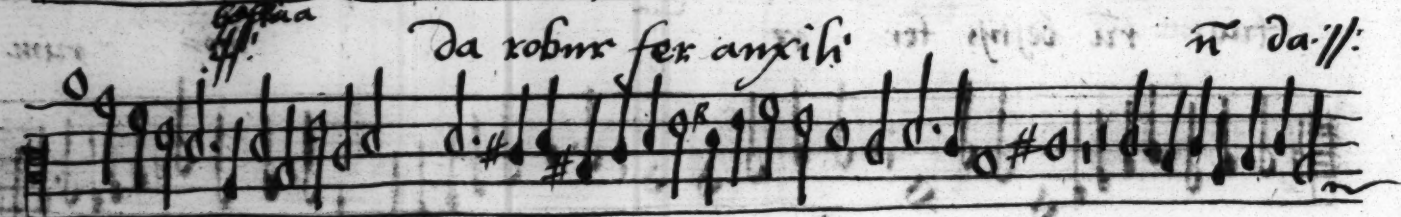 da robur fer auxili n̄ da ://: